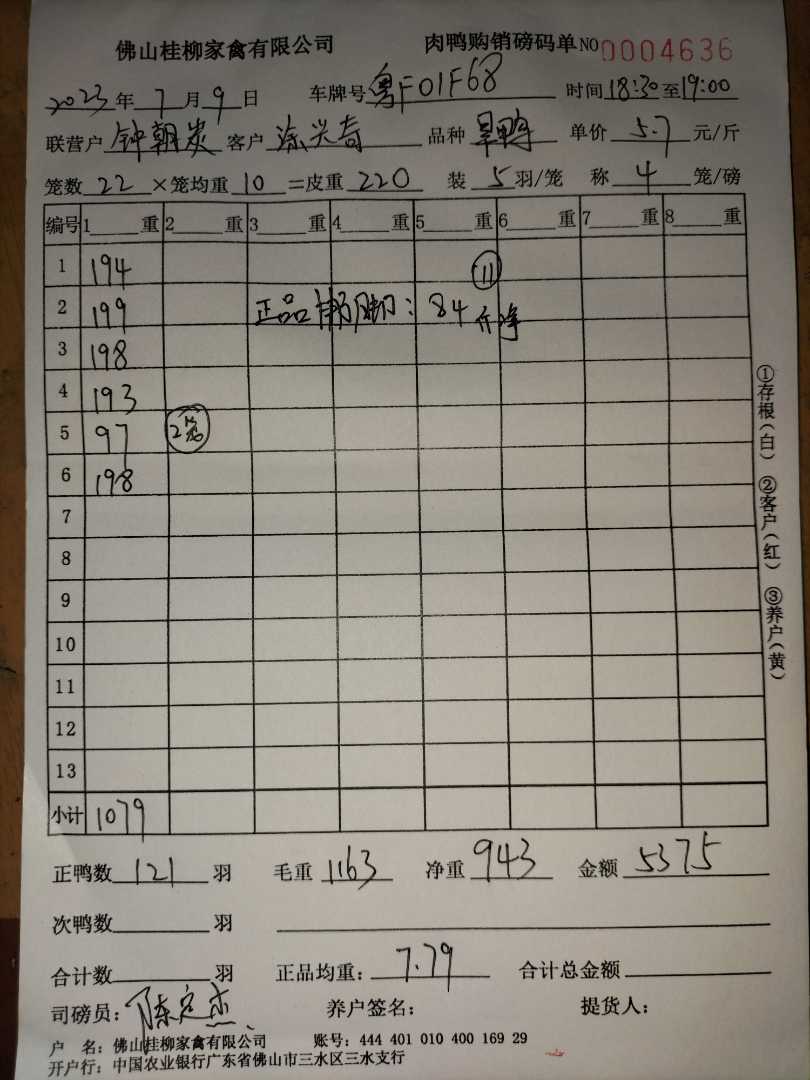 佛山桂柳家禽有限公司 肉鸭购销磅码单 NO 0004636
2023年7月9日 车牌号 粤F01F68 时间 18:30至19:00
联营户 钟朝炭 客户 涂兴奇 品种 旱鸭 单价 5.7 元/斤
笼数 22 ×笼均重 10 =皮重 220 装 5 羽/笼 称 4 笼/磅
编号 1 重 2 重 3 重 4 重 5 重 6 重 7 重 8 重
1 194 11
2 199 正品 脚: 84 斤净
3 198
4 193
5 97 2笼
6 198
7
8
9
10
11
12
13
小计 1079
正鸭数 121 羽 毛重 1163 净重 943 金额 5375
次鸭数 羽
合计数 羽 正品均重: 7.79 合计总金额
司磅员: 陈定杰 养户签名: 提货人:
户 名: 佛山桂柳家禽有限公司 账号: 444 401 010 400 169 29
开户行: 中国农业银行广东省佛山市三水区三水支行
①存根(白) ②客户(红) ③养户(黄)